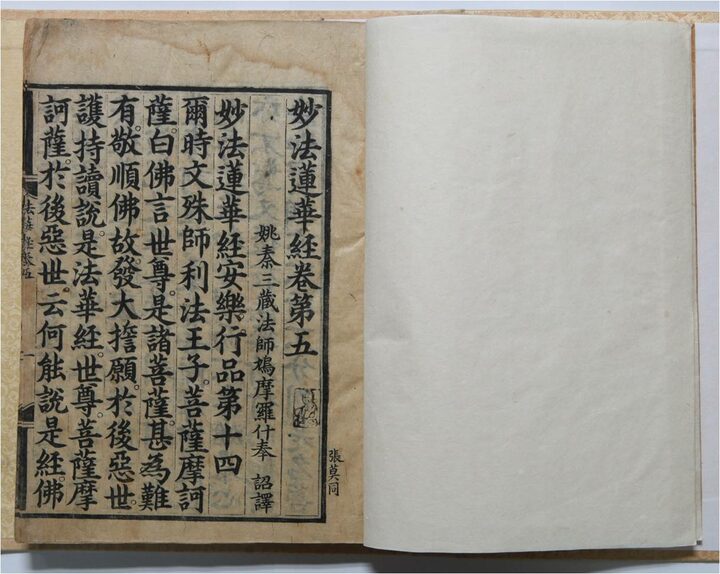 妙法蓮華經卷第五
姚秦三藏法師鳩摩羅什奉 詔譯
妙法蓮華經安樂行品第十四
爾時文殊師利法王子菩薩摩訶
薩白佛言世尊是諸菩薩甚為難
有敬順佛故發大擔願於後惡世
護持讀說是法華經世尊菩薩摩
訶薩於後惡世云何能說是經佛
張莫同